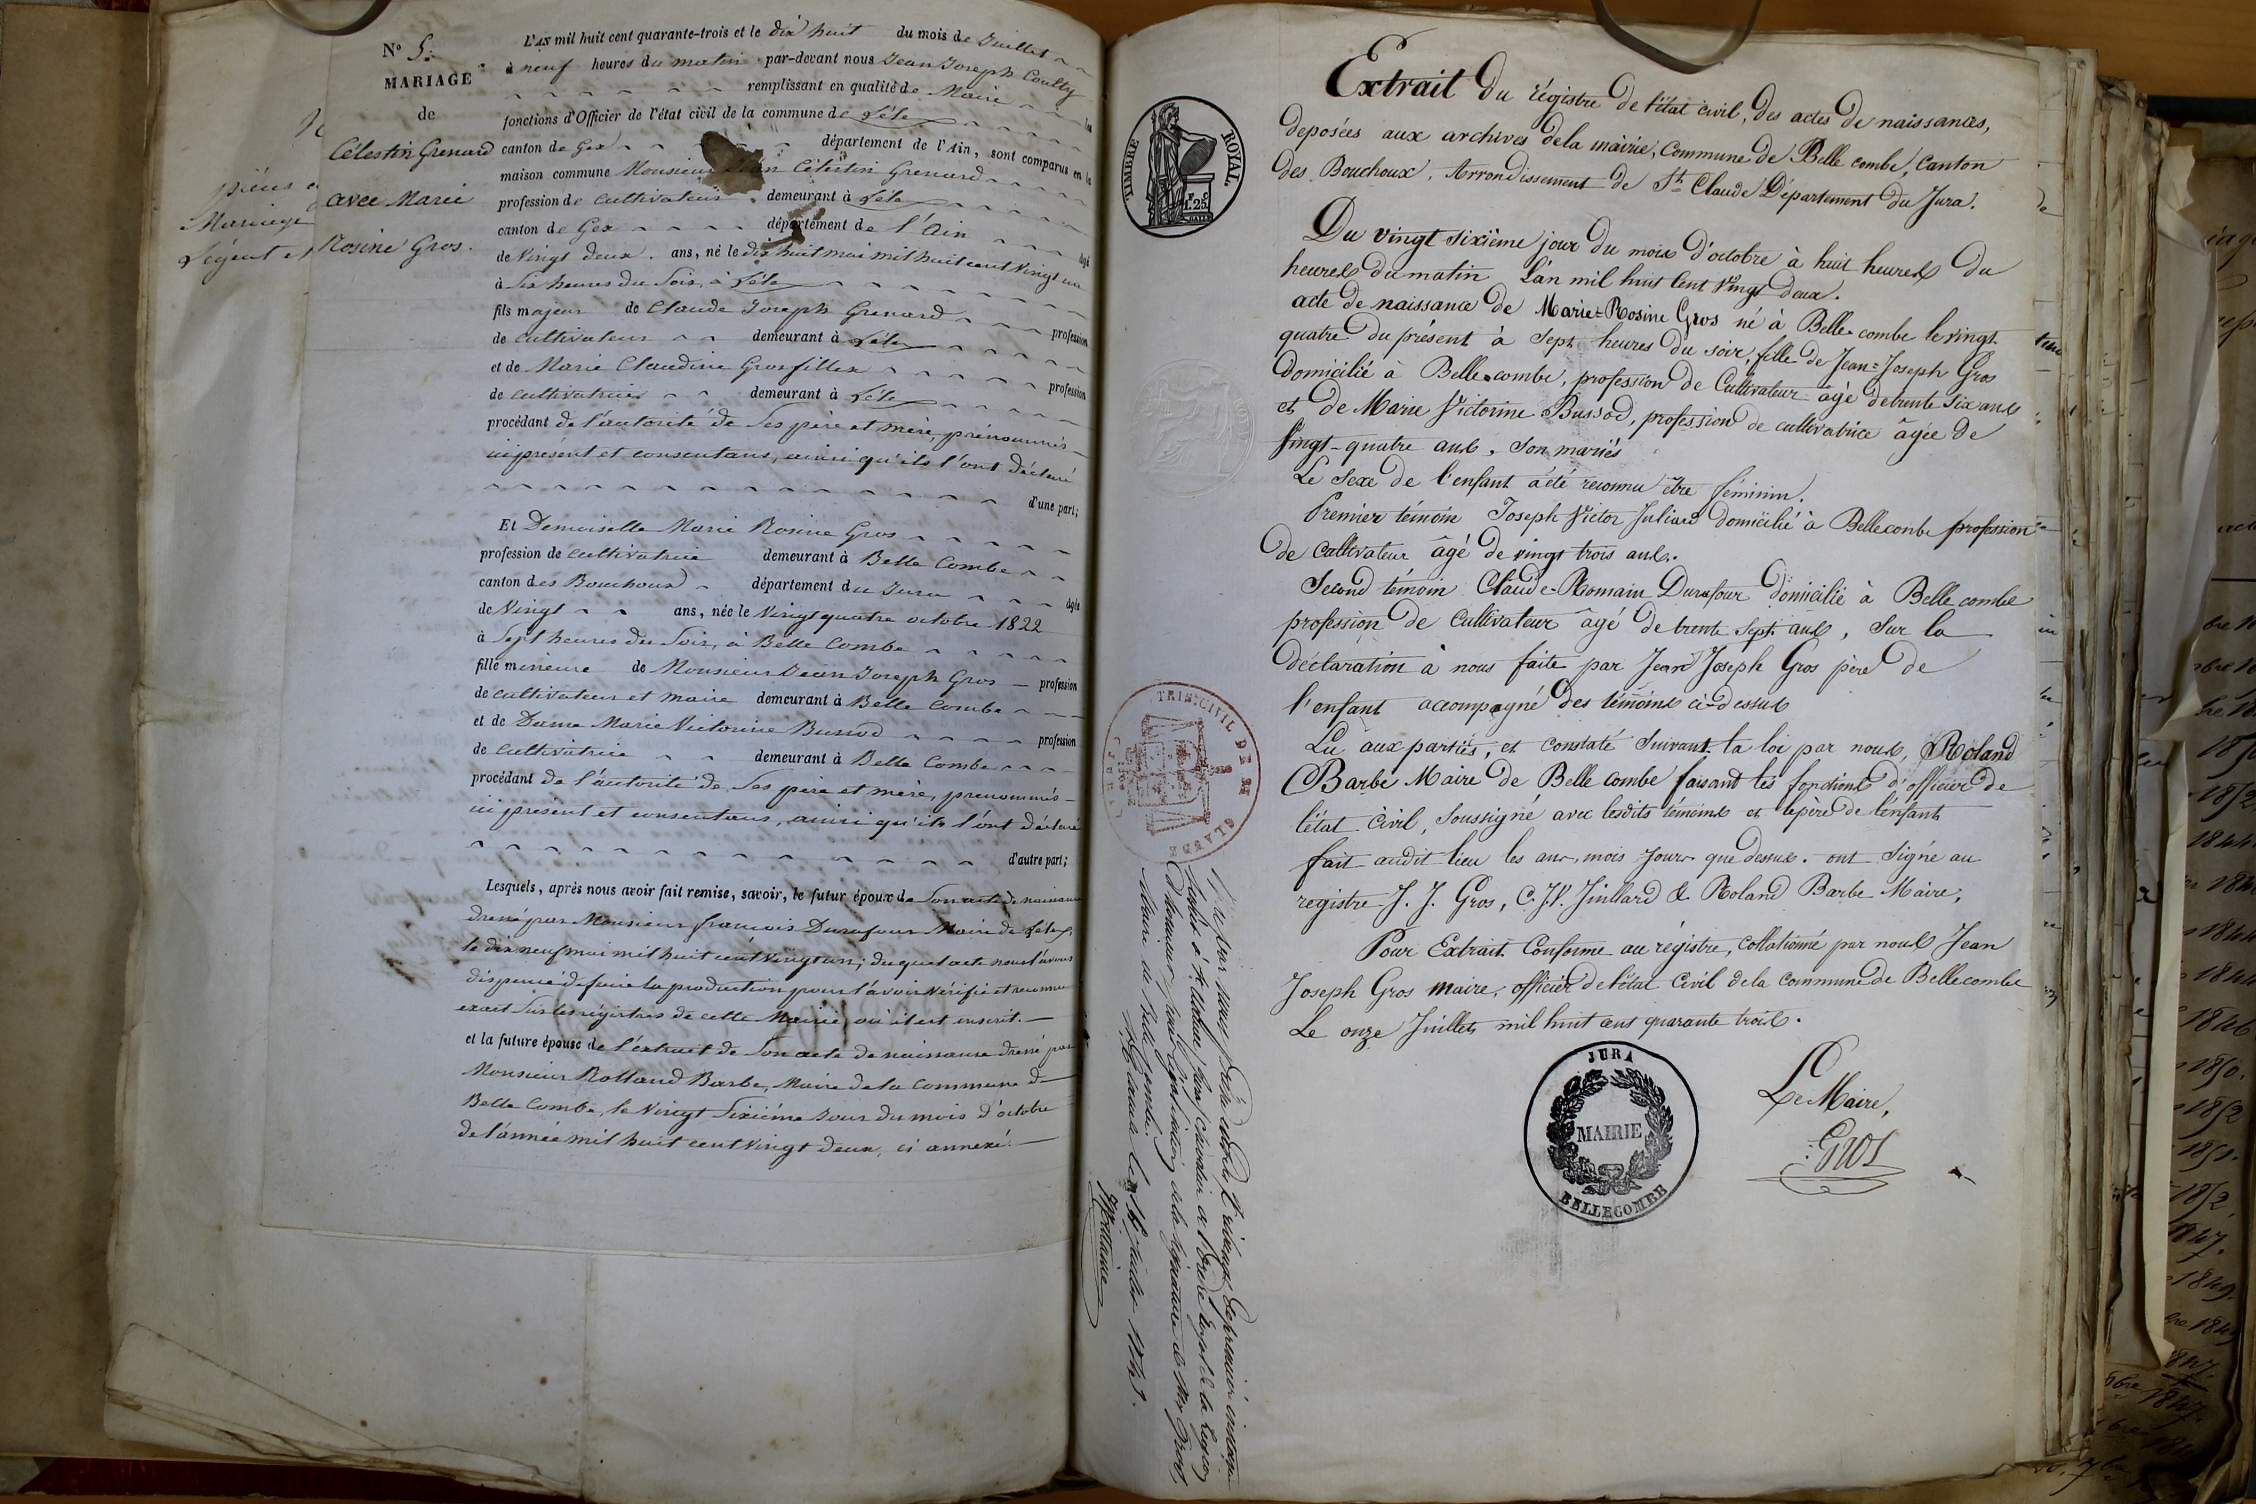 N° 5.
MARIAGE
de
Célestin Grenard
avec Marie
Rosine Gros.
L'AN mil huit cent quarante-trois et le dix huit du mois de Juillet
à neuf heures du matin par-devant nous Jean Joseph Coutty
remplissant en qualité de Maire les
fonctions d'Officier de l'état civil de la commune de Lélex
canton de Gex département de l'Ain, sont comparus en la
maison commune Monsieur Célestin Grenard
profession de cultivateur demeurant à Lélex
canton de Gex département de l'Ain âgé
de Vingt deux ans, né le dix huit mai mil huit cent Vingt un
à Six heures du Soir, à Lélex
fils majeur de Claude Joseph Grenard profession
de cultivateur demeurant à Lélex
et de Marie Claudine Grosfillex profession
de cultivatrice demeurant à Lélex
procédant de l'autorité de Ses père et mère, prénommés
ici présent et consentans, ainsi qu'ils l'ont déclaré
d'une part;
Et Demoiselle Marie Rosine Gros
profession de cultivatrice demeurant à Belle Combe
canton des Bouchoux département du Jura âgée
de Vingt ans, née le Vingt quatre octobre 1822
à Sept heures du Soir, à Belle Combe
fille mineure de Monsieur Jean Joseph Gros profession
de cultivateur et maire demeurant à Belle Combe
et de Dame Marie Victorine Bussod profession
de cultivatrice demeurant à Belle Combe
procédant de l'autorité de Ses père et mère, prenommés
ici présent et consentans, ainsi qu'ils l'ont déclaré
d'autre part;
Lesquels, après nous avoir fait remise, savoir, le futur époux de Son acte de naissance
dressé par Monsieur françois Durafour Maire de Lélex,
le dix neuf mai mil huit cent vingt un; duquel acte nous l'avons
dispensé de faire la production pour l'avoir vérifié et reconnu
exact Sur les régistres de cette Mairie, où il est inscrit.
et la future épouse de l'extrait de Son acte de naissance dressé par
Monsieur Rolland Barbe, Maire de la Commune de
Belle Combe, le Vingt Sixième Jour du mois d'octobre
de l'année mil huit cent Vingt deux, ci annexé.
TIMBRE ROYAL
1f. 25c.
Extrait du régistre de l'état civil, des actes de naissances,
deposées aux archives de la mairie, commune de Belle combe, canton
des Bouchoux, Arrondissement de St Claude Département du Jura.
Du vingt sixième jour du mois d'octobre à huit heures du
heures du matin L'an mil huit cent vingt deux.
acte de naissance de Marie-Rosine Gros né à Belle combe le vingt
quatre du présent à Sept heures du soir, fille de Jean-Joseph Gros
Domicilié à Belle combe, profession de Cultivateur âgé de trente six ans
et de Marie Victorine Bussod, profession de cultivatrice âgée de
Vingt-quatre ans, son mariés
Le Sexe de l'enfant a été reconnu être féminin.
Premier témoin Joseph Victor Juliard domicilié à Bellecombe profession
de Cultivateur âgé de vingt trois ans.
Second témoin Claude-Romain Durafour domicilié à Belle combe
profession de Cultivateur âgé de trente Sept ans, Sur la
déclaration à nous faite par Jean Joseph Gros père de
l'enfant accompagné des témoins ci-dessus
Lu aux parties, et constaté Suivant la loi par nous, Roland
Barbe Maire de Belle combe faisant les fonctions d'officier de
l'état civil, soussigné avec lesdits témoins et le père de l'enfant
fait audit lieu les ans, mois Jours que dessus. ont Signé au
registre J. J. Gros, C. J. V. Juillard & Roland Barbe Maire,
Pour Extrait Conforme au régistre, collationné par nous Jean
Joseph Gros maire, officier de l'état Civil de la commune de Bellecombe
Le onze Juillet mil huit cent quarante trois.
Le Maire,
Gros
JURA
MAIRIE
BELLECOMBE
TRIB. CIVIL DE ST CLAUDE
(JURA)